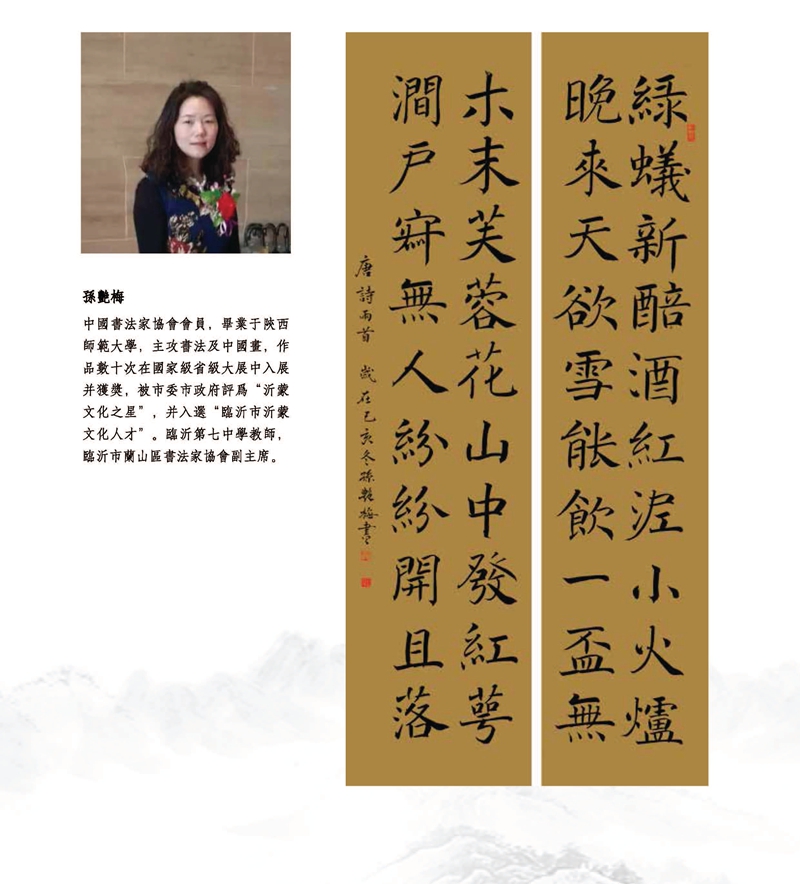 孫艷梅
中國書法家協會會員，畢業于陝西
師範大學，主攻書法及中國畫，作
品數十次在國家級省級大展中入展
并獲獎，被市委市政府評爲“沂蒙
文化之星”，并入選“臨沂市沂蒙
文化人才”。臨沂第七中學教師，
臨沂市蘭山區書法家協會副主席。
綠蟻新醅酒紅泥小火爐
晚來天欲雪能飲一盃無
木末芙蓉花山中發紅萼
澗戶寂無人紛紛開且落
唐詩兩首 歲在己亥冬孫艷梅書